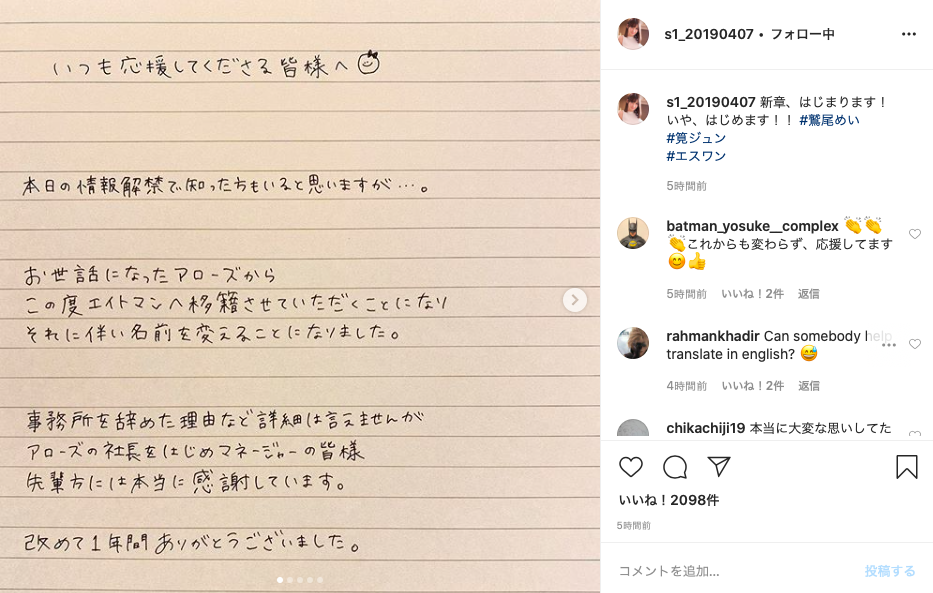 いつも応援してくださる皆様へ
本日の情報解禁で知った方もいると思いますが…。
お世話になったアローズから
この度エイトマンへ移籍させていただくことになり
それに伴い名前を変えることになりました。
事務所を辞めた理由など詳細は言えませんが
アローズの社長をはじめマネージャーの皆様
先輩方には本当に感謝しています。
改めて1年間ありがとうございました。
s1_20190407 • フォロー中
s1_20190407 新章、はじまります！
いや、はじめます！！ #鷲尾めい
#筧ジュン
#エスワン
5時間前
batman_yosuke__complex 👏👏
👏これからも変わらず、応援してます
😊👍
5時間前 いいね！2件 返信
rahmankhadir Can somebody help
translate in english? 😅
4時間前 いいね！2件 返信
chikachiji19 本当に大変な思いしてた
いいね！2098件
5時間前
コメントを追加...
投稿する